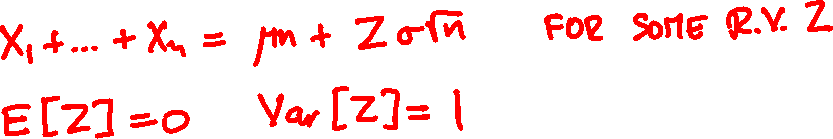 X₁ + ... + Xₙ = μn + Zσ√n FOR SOME R.V. Z
E[Z]=0 Var[Z]=1